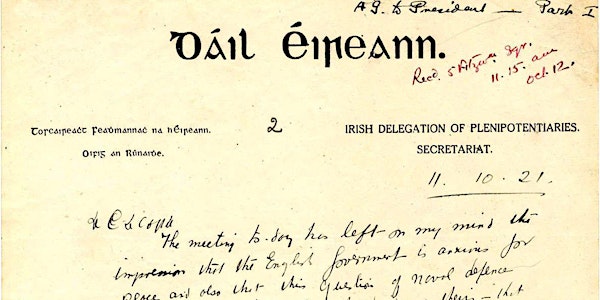 A.G. to President — Part I
Dáil Éireann.
Recd. 5 Fitzwm Sqr.
11.15. am
Oct. 12.
Toscaireaċt Feaḋmannaċ na hÉireann.
Oifig an Rúnaiḋe.
2
IRISH DELEGATION OF PLENIPOTENTIARIES.
SECRETARIAT.
11. 10. 21.
The meeting to-day has left on my mind the
impression that the English Government is anxious for
peace and also that this question of naval defence
that